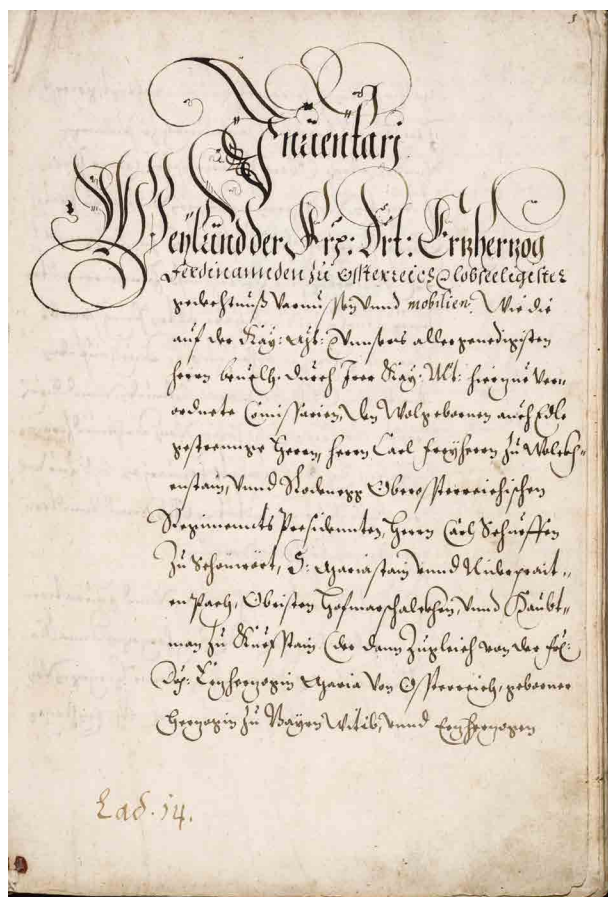 Inuentarj
Weylünd der Frx: Drt: Erzherzog
Ferdinannden zu Össterreich Lobseeligister
gedechtnuß Varnussen vnnd mobilien. Wie die
auf der Kay: Mt: Vnnsers allergenedigisten
herrn beuelh durch Irer Kay: Mt: hierzue Ver-
ordnete Comissarien, Den Wolgebornen auch Edle
gestrennge Herrn, herrn Carl Freyherrn zu Wolckh=
enstain, vnnd Rodnegg Oberösterreichischen
Regiments Presidennten, Herrn Carl Schurffen
zu Schönwört, Mariastain vnnd Niderprait=
en Pach, Obristen Hofmarschalckhen, vnnd Haubt=
man zu Kuefstain (der dann zugleich von der Frl:
Drt: Erzherzogin Maria Von Össterreich, geborner
Herzogin zu Bayrn Witib, vnnd Erzherzogen
Lad. 14.